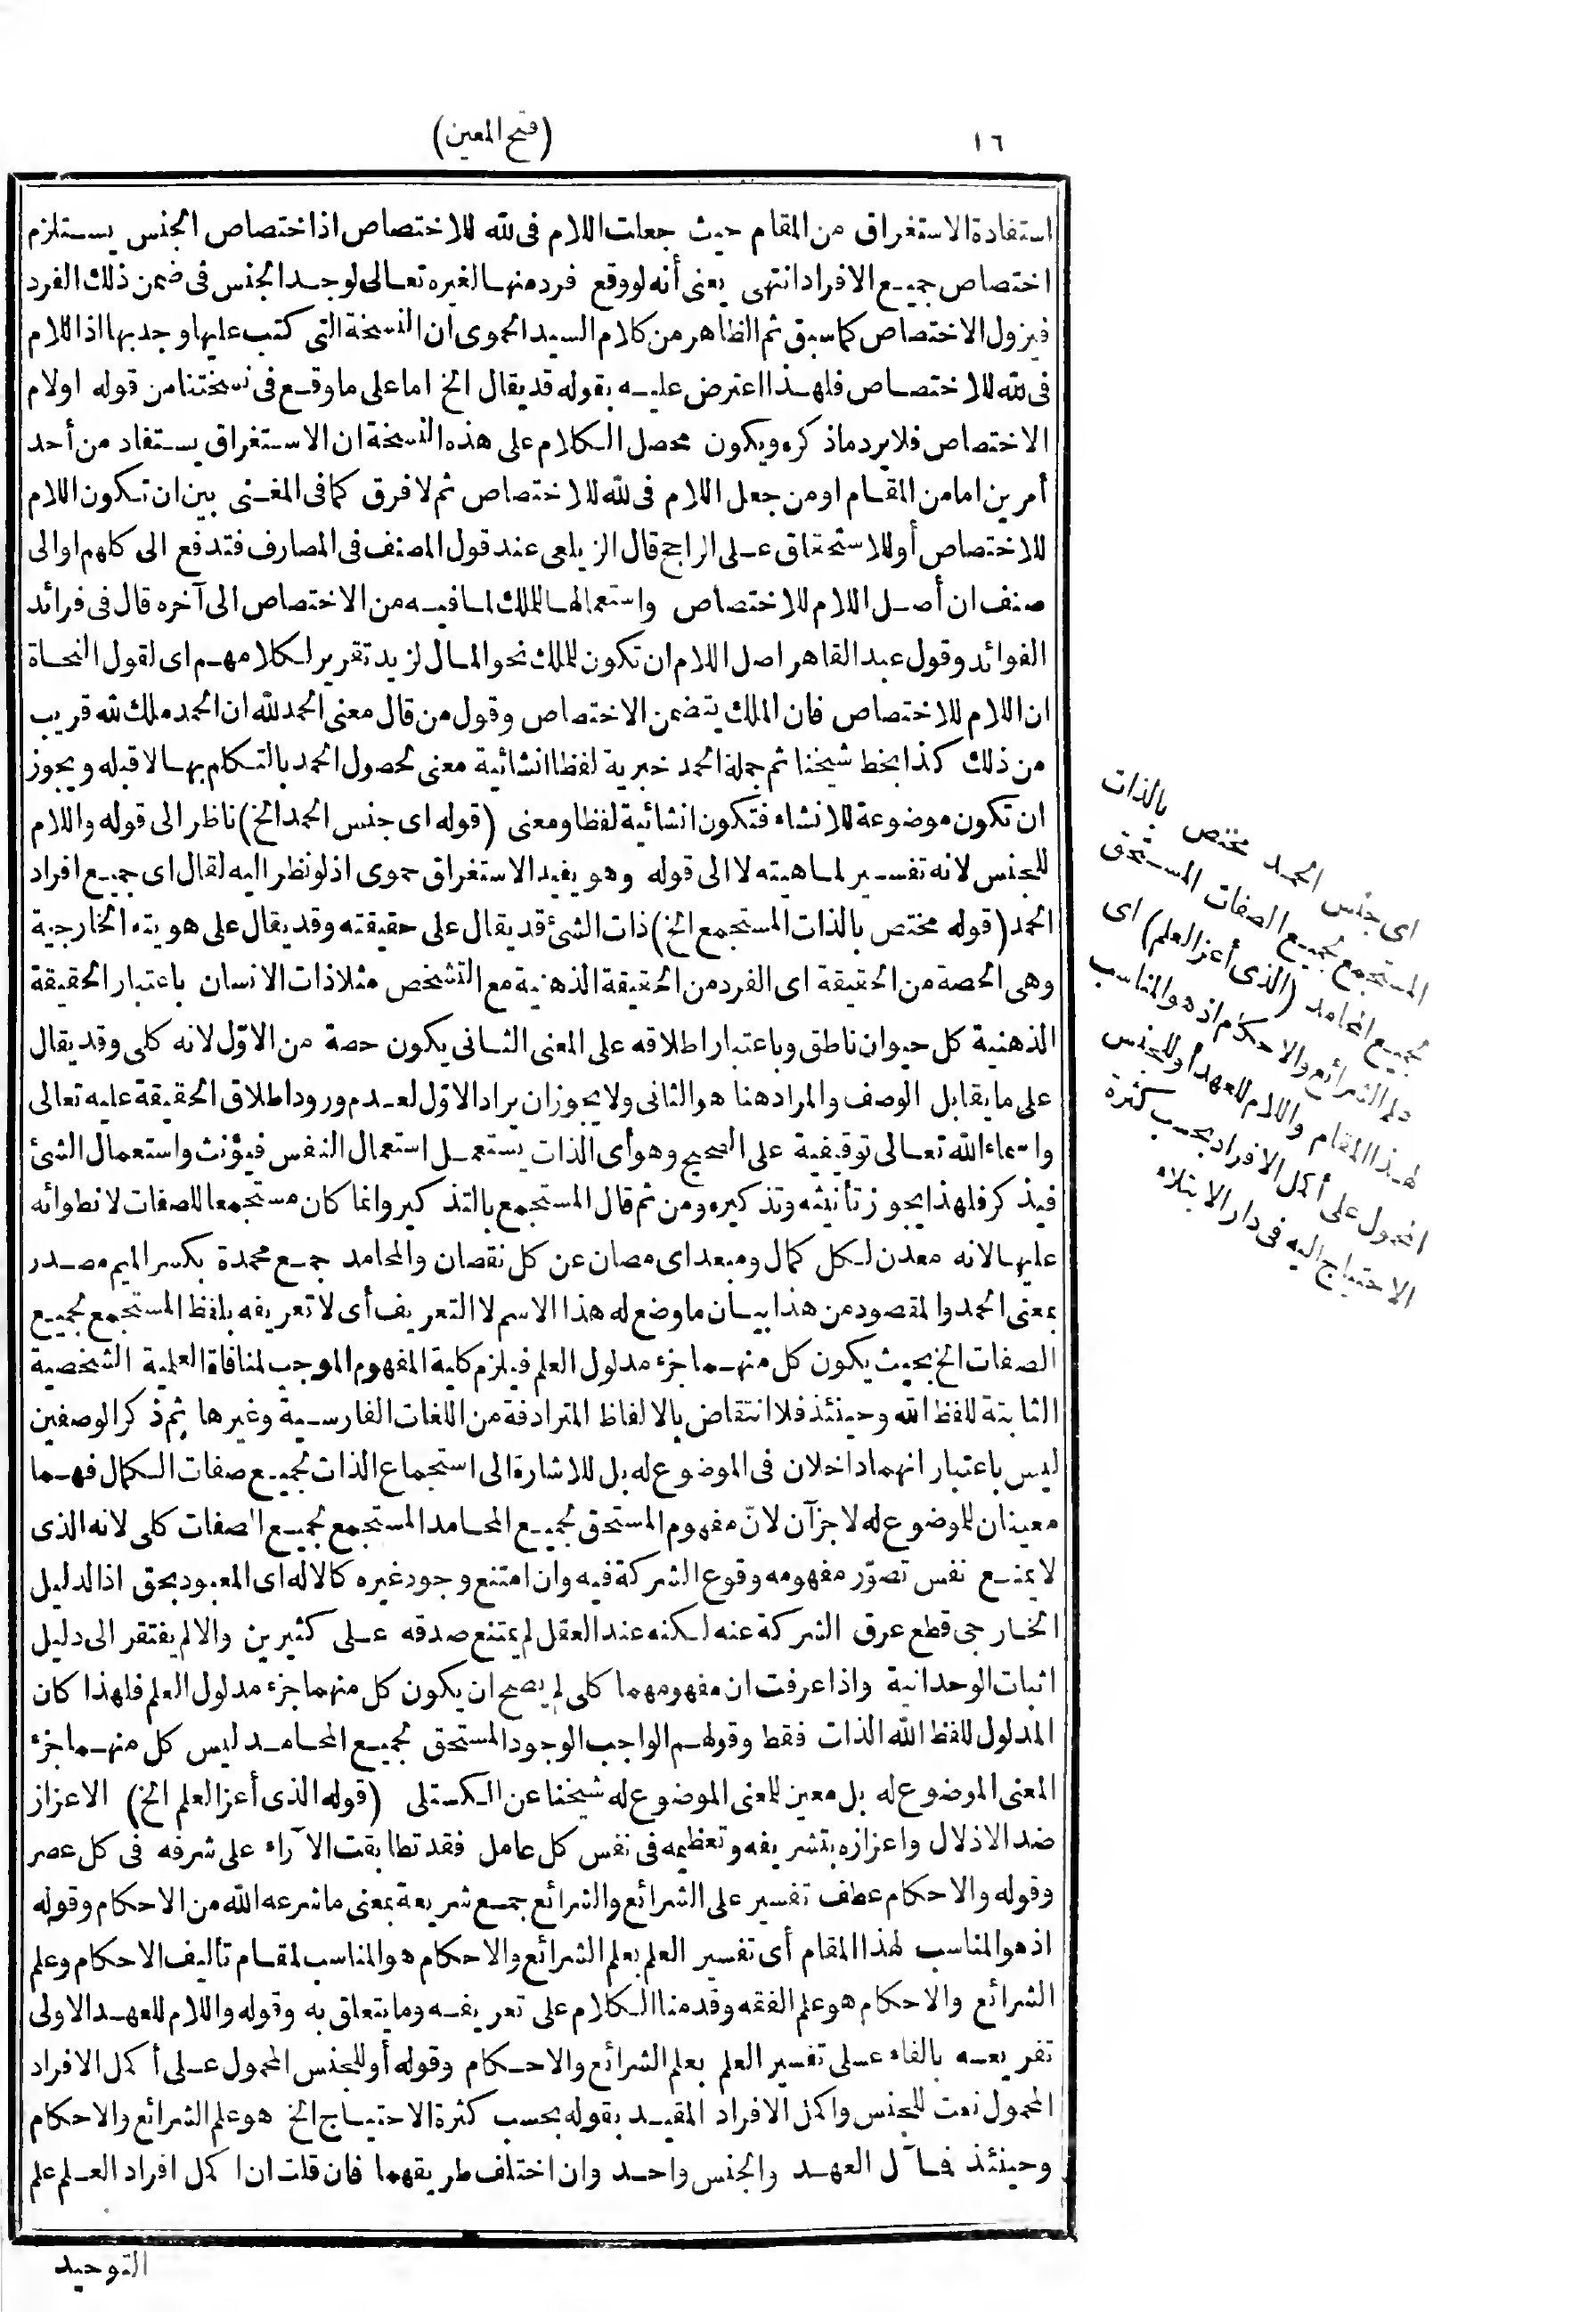 ١٦
(فتح المعين)
استفادة الاستغراق من المقام حيث جعلت اللام فى لله للاختصاص اذا ختصاص الجنس يستلزم
اختصاص جميع الافراد انتهى يعنى أنه لو وقع فرد منها لغيره تعالى لوجد الجنس فى ضمن ذلك الفرد
فيزول الاختصاص كما سبق ثم الظاهر من كلام السيد الحموى ان النسخة التى كتب عليها وجد بها اذ اللام
فى لله للاختصاص فلهذا اعترض عليه بقوله قد يقال الخ اما على ما وقع فى نسختنا من قوله اولام
الاختصاص فلا يرد ماذكره ويكون محصل الكلام على هذه النسخة ان الاستغراق يستفاد من أحد
أمرين اما من المقام او من جعل اللام فى لله للاختصاص ثم لا فرق كما فى المغنى بين ان تكون اللام
للاختصاص أو للاستحقاق على الراجح قال الزيلعى عند قول المصنف فى المصارف فتدفع الى كلهم او الى
صنف ان أصل اللام للاختصاص واستعمالها للملك لما فيه من الاختصاص الى آخره قال فى فرائد
الفوائد وقول عبد القاهر اصل اللام ان تكون للملك نحو المال لزيد تقرير لكلامهم اى لقول النحاة
ان اللام للاختصاص فان الملك يتضمن الاختصاص وقول من قال معنى الحمد لله ان الحمد ملك لله قريب
من ذلك كذا بخط شيخنا ثم جملة الحمد خبرية لفظا انشائية معنى لحصول الحمد بالتكلم بها لا قبله ويجوز
ان تكون موضوعة للانشاء فتكون انشائية لفظا ومعنى (قوله اى جنس الحمد الخ) ناظر الى قوله واللام
للجنس لانه تفسير لماهيته لا الى قوله وهو يفيد الاستغراق حموى اذ لو نظر اليه لقال اى جميع افراد
الحمد (قوله مختص بالذات المستجمع الخ) ذات الشئ قد يقال على حقيقته وقد يقال على هويته الخارجية
وهى الحصة من الحقيقة اى الفرد من الحقيقة الذهنية مع التشخص مثلا ذات الانسان باعتبار الحقيقة
الذهنية كل حيوان ناطق وباعتبار اطلاقه على المعنى الثانى يكون حصة من الاوّل لانه كلى وقد يقال
على ما يقابل الوصف والمراد هنا هو الثانى ولا يجوز ان يراد الاوّل لعدم ورود اطلاق الحقيقة عليه تعالى
واسماء الله تعالى توقيفية على الصحيح وهو أى الذات يستعمل استعمال النفس فيؤنث واستعمال الشئ
فيذكر فلهذا يجوز تأنيثه وتذكيره ومن ثم قال المستجمع بالتذكير وانما كان مستجمعا للصفات لانطوائه
عليها لانه معدن لكل كمال ومبعد اى مصان عن كل نقصان والمحامد جمع محمدة بكسر الميم مصدر
بمعنى الحمد والمقصود من هذا بيان ما وضع له هذا الاسم لا التعريف أى لا تعريفه بلفظ المستجمع لجميع
الصفات الخ بحيث يكون كل منهما جزء مدلول العلم فيلزم كلية المفهوم الموجب لمنافاة العلمية الشخصية
الثابتة للفظ الله وحينئذ فلا انتقاض بالالفاظ المترادفة من اللغات الفارسية وغيرها ثم ذكر الوصفين
ليس باعتبار انهما داخلان فى الموضوع له بل للاشارة الى استجماع الذات لجميع صفات الكمال فهما
معينان للموضوع له لا جزآن لانّ مفهوم المستحق لجميع المحامد المستجمع لجميع الصفات كلى لانه الذى
لا يمنع نفس تصوّر مفهومه وقوع الشركة فيه وان امتنع وجود غيره كالاله اى المعبود بحق اذ الدليل
الخارجى قطع عرق الشركة عنه لكنه عند العقل لم يمتنع صدقه على كثيرين والا لم يفتقر الى دليل
اثبات الوحدانية واذا عرفت ان مفهومهما كلى لم يصح ان يكون كل منهما جزء مدلول العلم فلهذا كان
المدلول للفظ الله الذات فقط وقولهم الواجب الوجود المستحق لجميع المحامد ليس كل منهما جزء
المعنى الموضوع له بل معين للمعنى الموضوع له شيخنا عن الكستلى (قوله الذى أعز العلم الخ) الاعزاز
ضد الاذلال واعزازه بتشريفه وتعظيمه فى نفس كل عامل فقد تطابقت الآراء على شرفه فى كل عصر
وقوله والاحكام عطف تفسير على الشرائع والشرائع جمع شريعة بمعنى ما شرعه الله من الاحكام وقوله
اذ هو المناسب لهذا المقام أى تفسير العلم بعلم الشرائع والاحكام هو المناسب لمقام تأليف الاحكام وعلم
الشرائع والاحكام هو علم الفقه وقد منا الكلام على تعريفه وما يتعلق به وقوله واللام للعهد الاولى
تفريعه بالفاء على تفسير العلم بعلم الشرائع والاحكام وقوله أو للجنس المحمول على أكمل الافراد
المحمول نعت للجنس واكمل الافراد المقيد بقوله بحسب كثرة الاحتياج الخ هو علم الشرائع والاحكام
وحينئذ فمآل العهد والجنس واحد وان اختلف طريقهما فان قلت ان اكمل افراد العلم علم
التوحيد
اى جنس الحمد مختص بالذات
المستجمع لجميع الصفات المستحق
لجميع المحامد (الذى أعز العلم) اى
علم الشرائع والاحكام اذ هو المناسب
لهذا المقام واللام للعهد أو للجنس
المحمول على أكمل الافراد بحسب كثرة
الاحتياج اليه فى دار الابتلاء